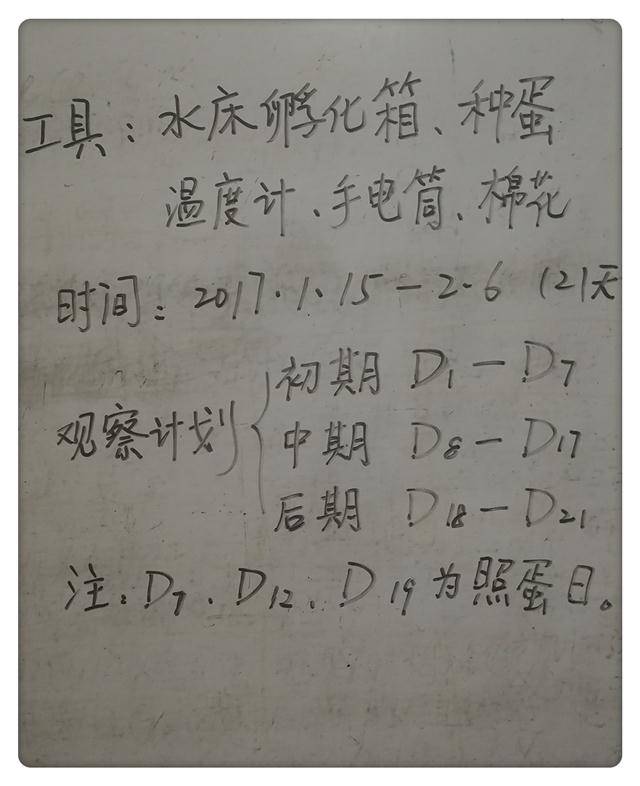 工具：水床孵化箱、种蛋
温度计、手电筒、棉花
时间：2017.1.15-2.6 (21天
观察计划
初期 D1-D7
中期 D8-D17
后期 D18-D21
注：D7、D12、D19为照蛋日。